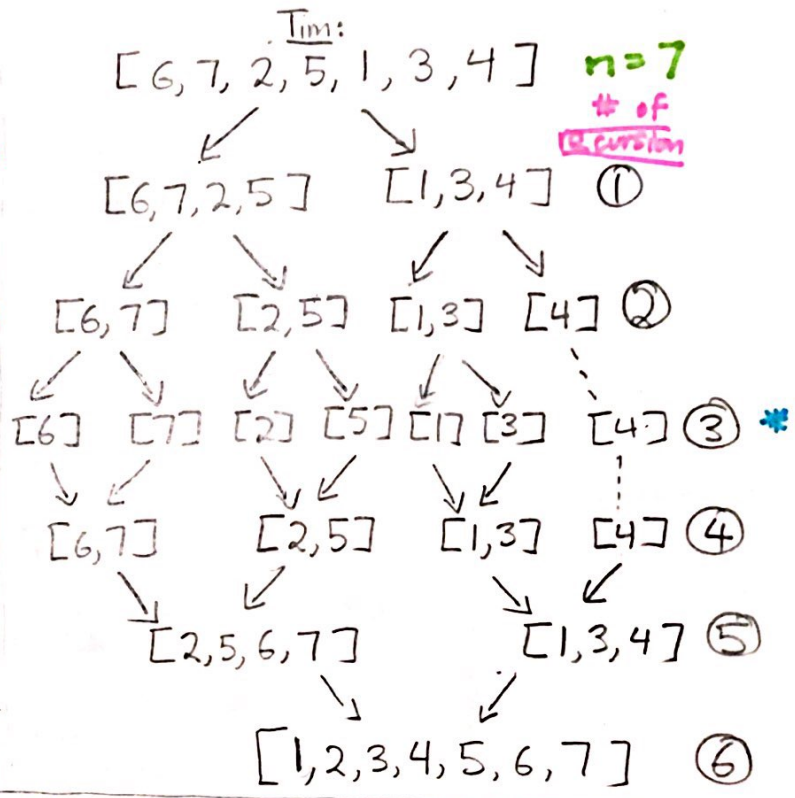 Tim:
[6,7,2,5,1,3,4] n=7
# of
recursion
[6,7,2,5] [1,3,4] ①
[6,7] [2,5] [1,3] [4] ②
[6] [7] [2] [5] [1] [3] [4] ③ *
[6,7] [2,5] [1,3] [4] ④
[2,5,6,7] [1,3,4] ⑤
[1,2,3,4,5,6,7] ⑥